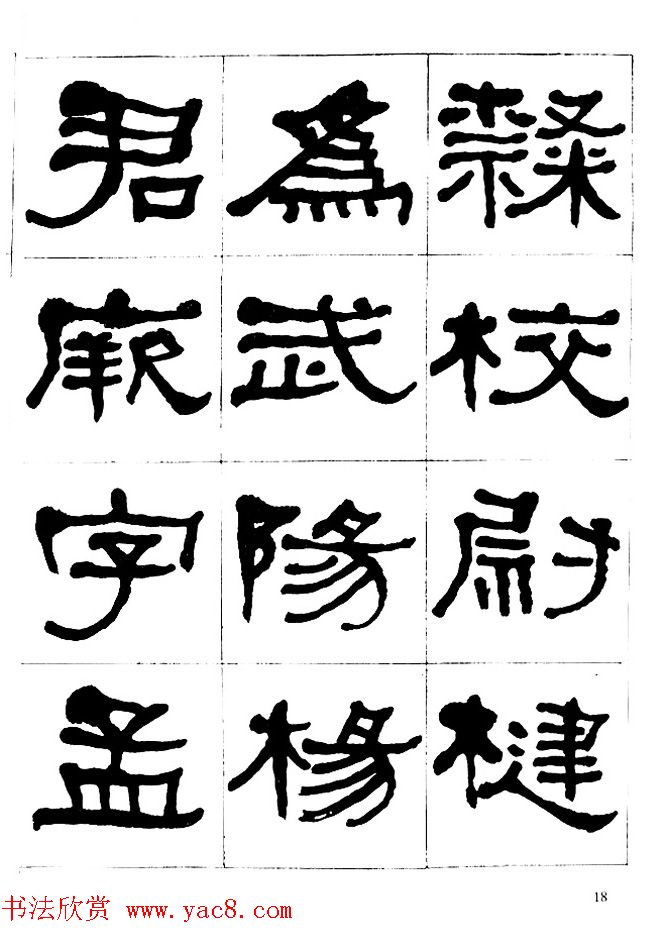 隸校尉楗
爲武陽楊
君厥字孟
18
书法欣赏 www.yac8.com